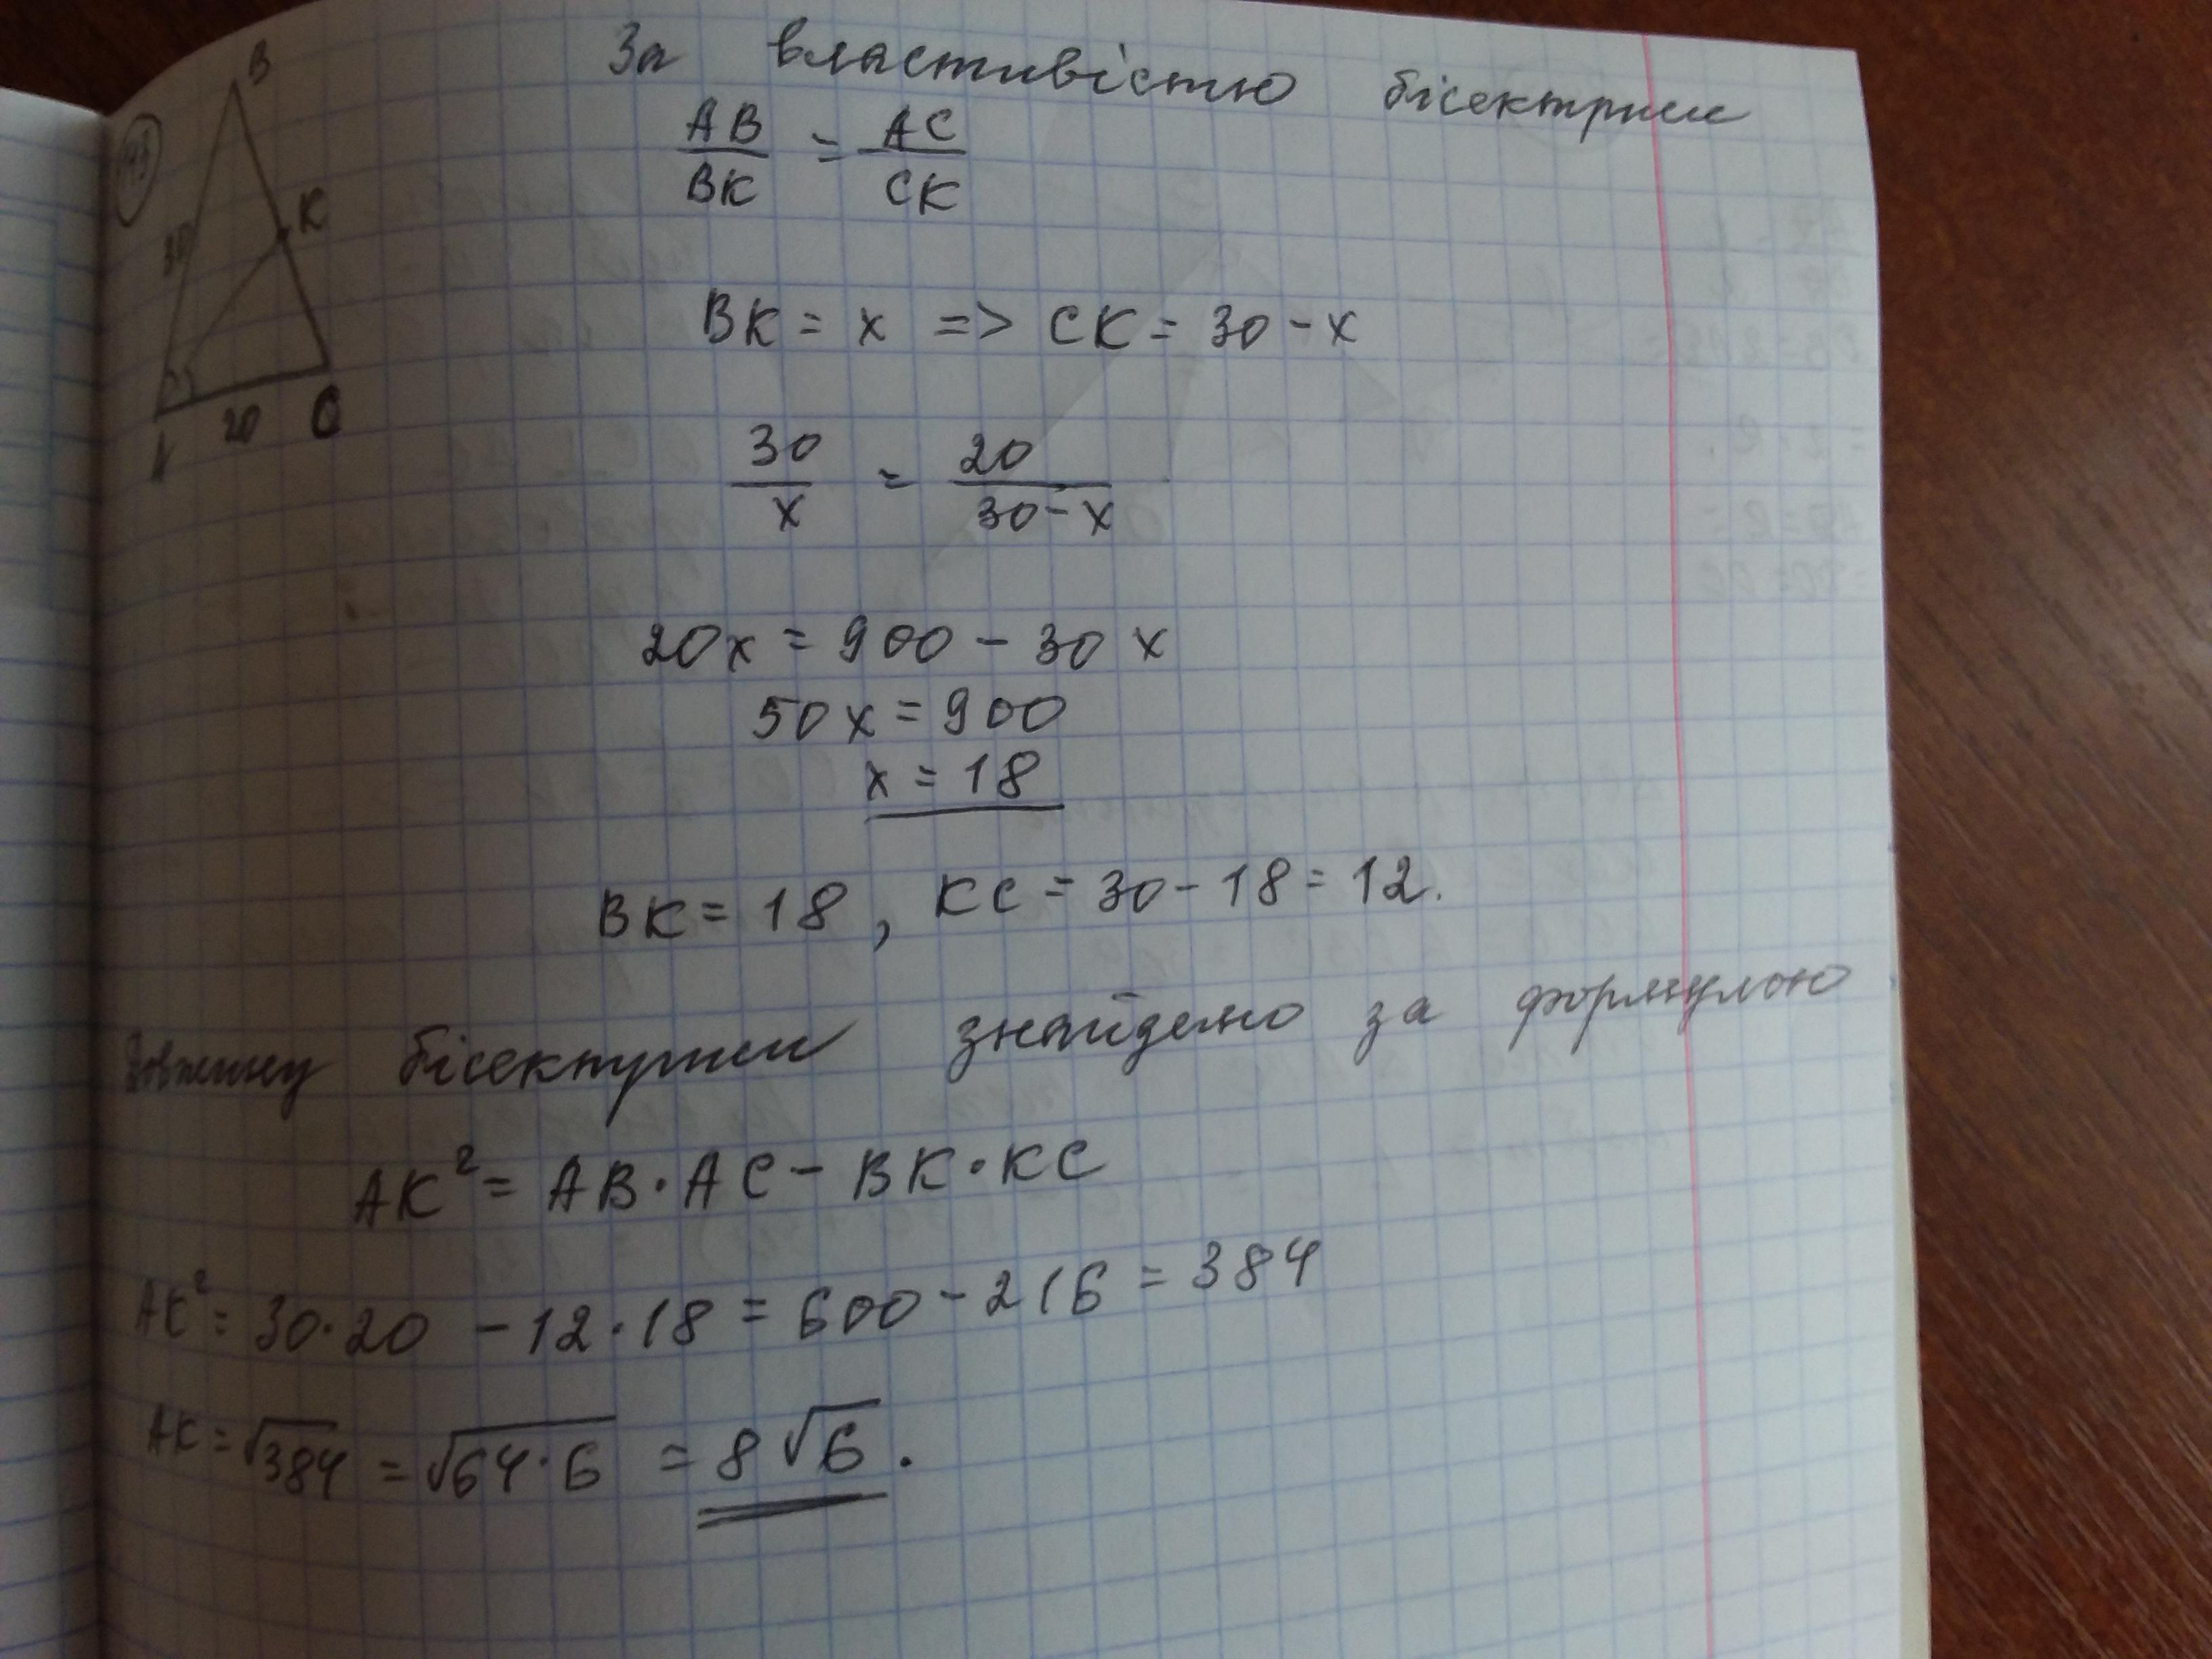 В
К
30
20
За властивістю бісектриси
AB/BK = AC/CK
BK = x => CK = 30 - x
30/x = 20/(30-x)
20x = 900 - 30x
50x = 900
x = 18
BK = 18, KC = 30 - 18 = 12.
Довжину бісектриси знайдемо за формулою
AK² = AB·AC - BK·KC
AK² = 30·20 - 12·18 = 600 - 216 = 384
AK = √384 = √64·6 = 8√6.